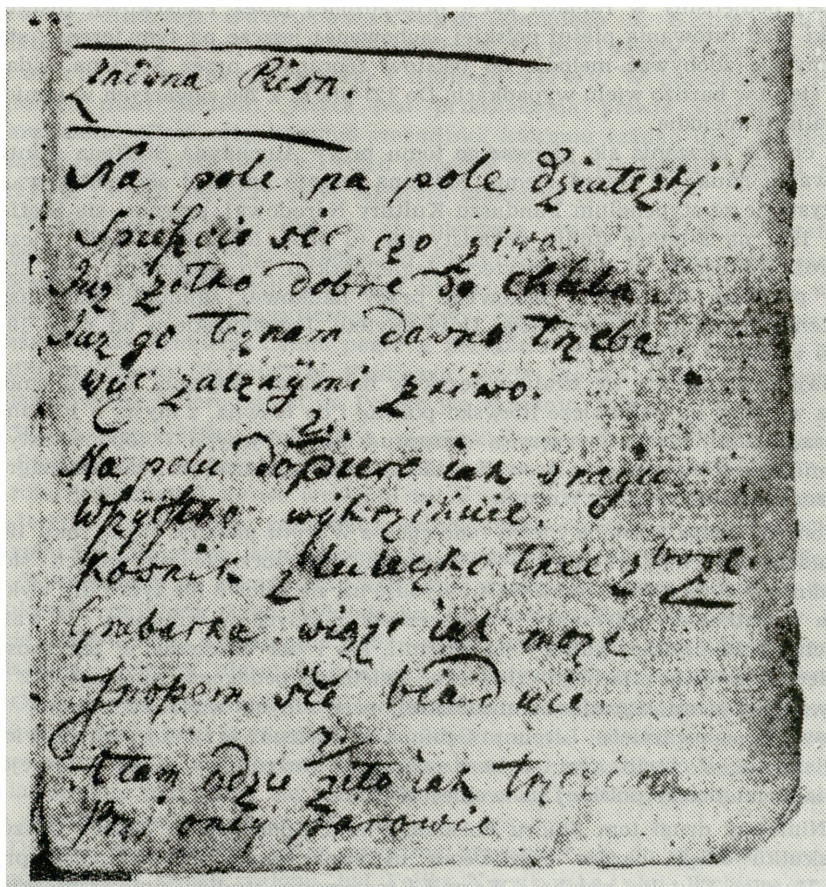 Zadona Piesn.
Na pole na pole dziateczki
Spieszcie sie czo ziwo
Juz zetko dobre do chleba.
Juz go teznam dawno trzeba
Wÿc zacznÿmi zniwo.
2.
Na polu dopiero iak w raiu
Wszÿstko wÿkrzikuie.
Kosnik z luteczke tnie zboze.
Grabarka wiąze iak moze
Snopem sie biaduie
3.
A tam gdzie zito iak trzcina
Przi onej parowie